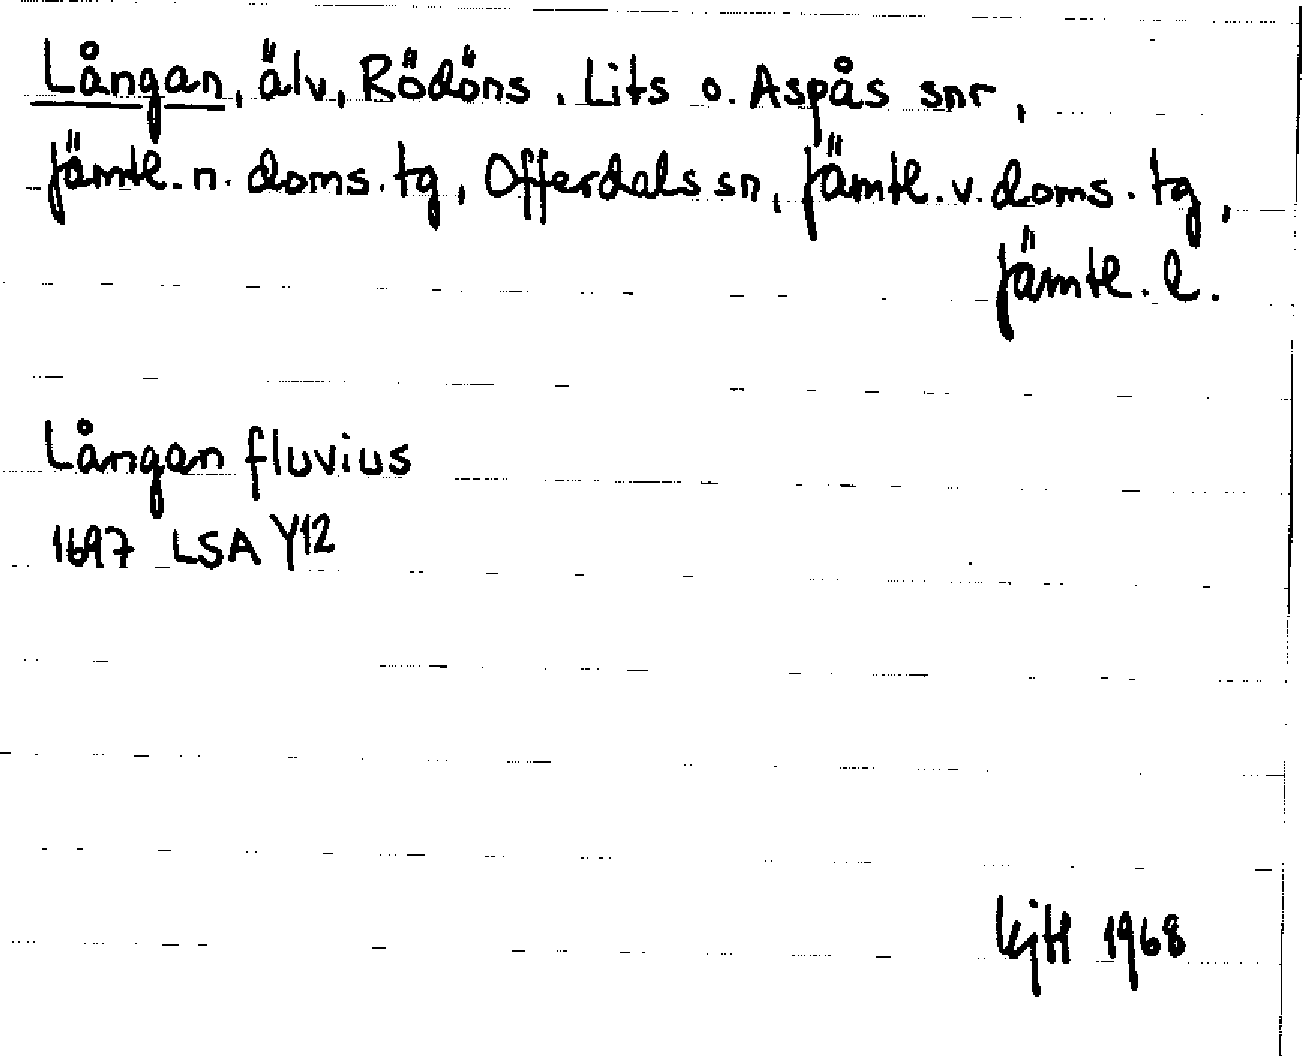 Långan, älv, Rödöns, Lits o. Aspås snr,
Jämtl. n. doms. tg, Offerdals sn, Jämtl. v. doms. tg,
Jämtl. l.
Långan fluvius
1697 LSA Y12
1968